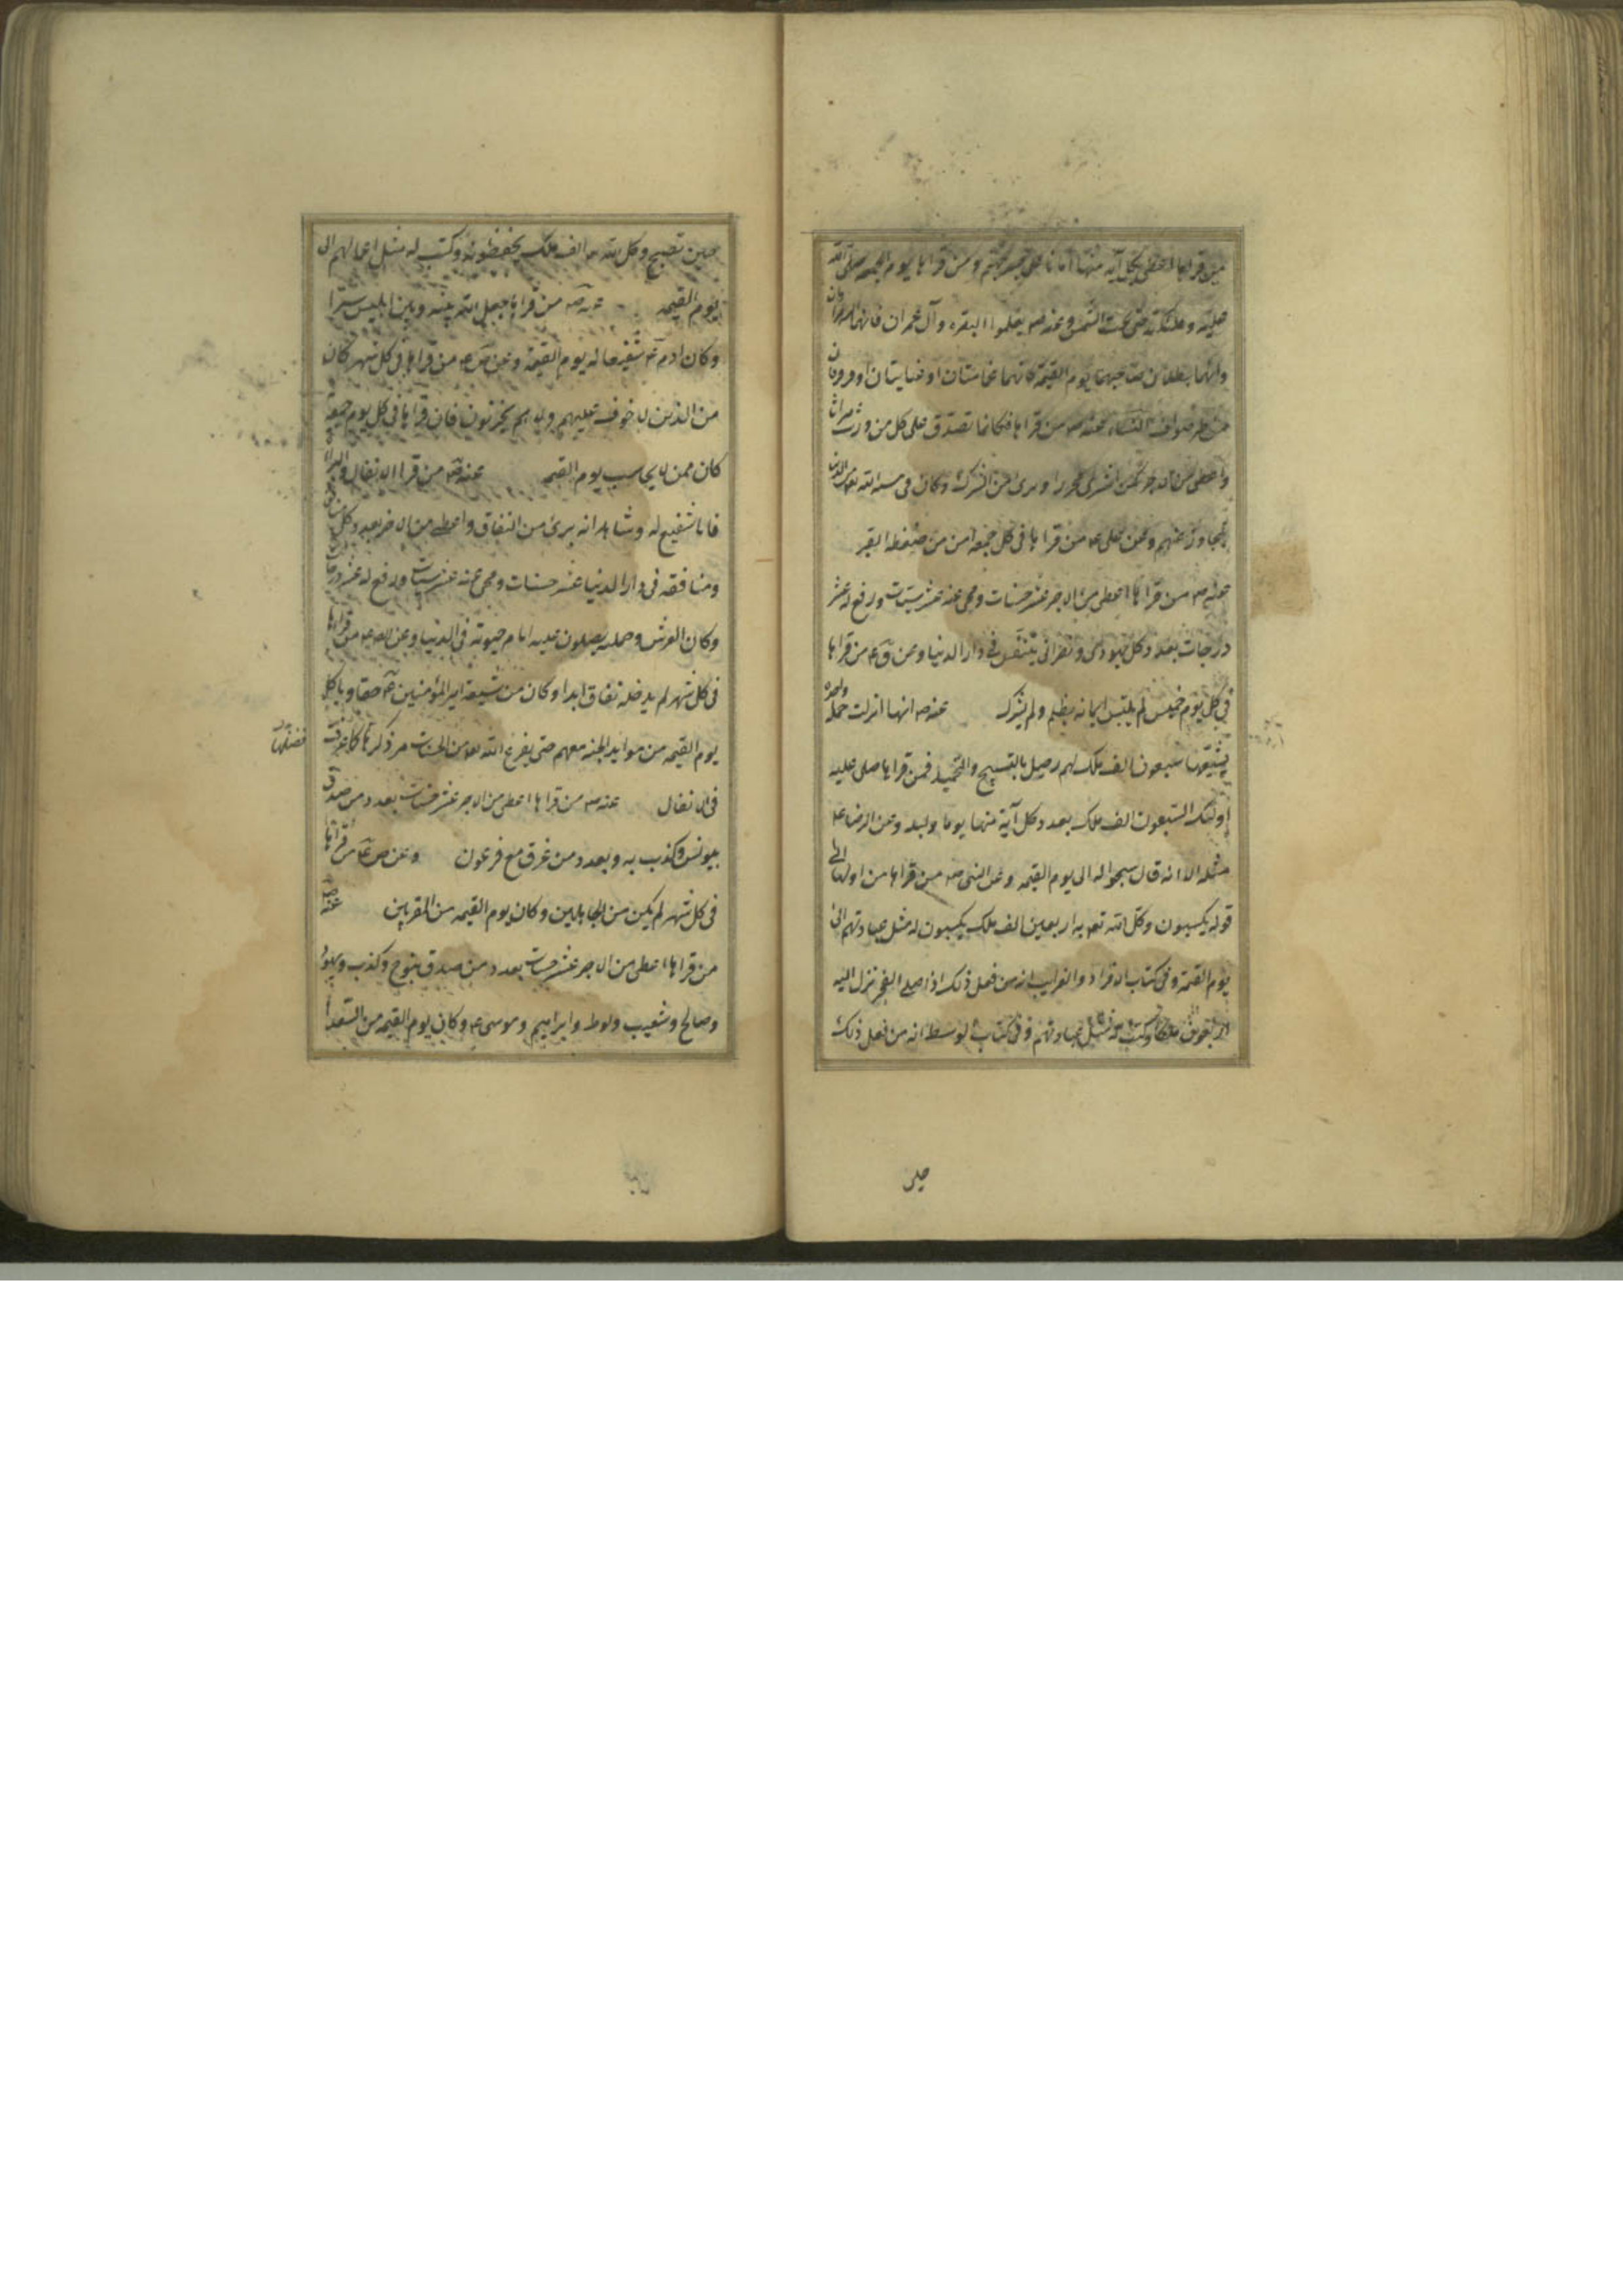 من قراها اعطى بكل آية منها امانا على جسر جهنم ومن قراها يوم الجمعه صلى الله
عليه وملئكته حتى تجب الشمس وعنه ص تعلموا البقره وآل عمران فانهما الزهراوان
وانهما يظلان صاحبهما يوم القيمة كانهما غمامتان او غيايتان او فرقان
من طير صواف النساء عنه ص من قراها فكانما تصدق على كل من ورث ميراثا
واعطى من الاجر كمن اشترى محررا وبرئ من الشرك وكان فى مشية الله تعه من الذين
يتجاوز عنهم وعن على ع من قراها فى كل جمعه امن من ضغطه القبر
عنه ص من قراها اعطى من الاجر عشر حسنات ومحى عنه عشر سيئات ورفع له عشر
درجات بعدد كل يهودى ونصرانى يتنفس فى دار الدنيا وعن ق ع من قراها
فى كل يوم خميس لم يلتبس ايمانه بظلم ولم يشرك عنه ص انها انزلت جملة واحدة
يشيعها سبعون الف ملك لهم زجل بالتسبيح والتحميد فمن قراها صلى عليه
اولئك السبعون الف ملك بعدد كل آية منها يوما وليله وعن الرضا ع
مثله الا انه قال سبحوا له الى يوم القيمه وعن النبى ص من قراها من اولها الى
قوله يكسبون وكل الله تعه به اربعين الف ملك يكتبون له مثل عبادتهم الى
يوم القيمة وفى كتاب الافراد والغرايب انه من فعل ذلك اذا صلى الفجر نزل اليه
اربعون ملكا وكتب له مثل عبادتهم وفى كتاب الوسيط انه من فعل ذلك
حين
حين تصبح وكل الله به الف ملك يحفظونه وكتب له مثل اعمالهم الى
يوم القيمه عنه ص من قراها جعل الله بينه وبين ابليس سترا
وكان ادم ع شفيعا له يوم القيمة وعن ص ع من قراها فى كل شهر كان
من الذين لا خوف عليهم ولا هم يحزنون فان قراها فى كل يوم جمعة
كان ممن لا يحاسب يوم القيمه عنه ص من قرا الانفال والبراة
فانا شفيع له وشاهد انه برئ من النفاق واعطى من الاجر بعدد كل منافق
ومنافقه فى دار الدنيا عشر حسنات ومحى عنه عشر سيئات ورفع له عشر درجات
وكان العرش وحملته يصلون عليه ايام حيوته فى الدنيا وعن ص ع من قراها
فى كل شهر لم يدخله نفاق ابدا وكان من شيعة امير المؤمنين ع حقا وياكل
يوم القيمه من موايد الجنه معهم حتى يفرغ الله تعه من الحساب مر ذكرها كما عرفت
فضلها
فى الانفال عنه ص من قراها اعطى من الاجر عشر حسنات بعدد من صدق
بيونس وكذب به وبعدد من غرق مع فرعون وعن ص ع من قراها
فى كل شهر لم يكن من الجاهلين وكان يوم القيمه من المقربين عنه ص
من قراها اعطى من الاجر عشر حسنات بعدد من صدق بنوح وكذب وبهود
وصالح وشعيب ولوط وابراهيم وموسى ع وكان يوم القيمه من السعدا